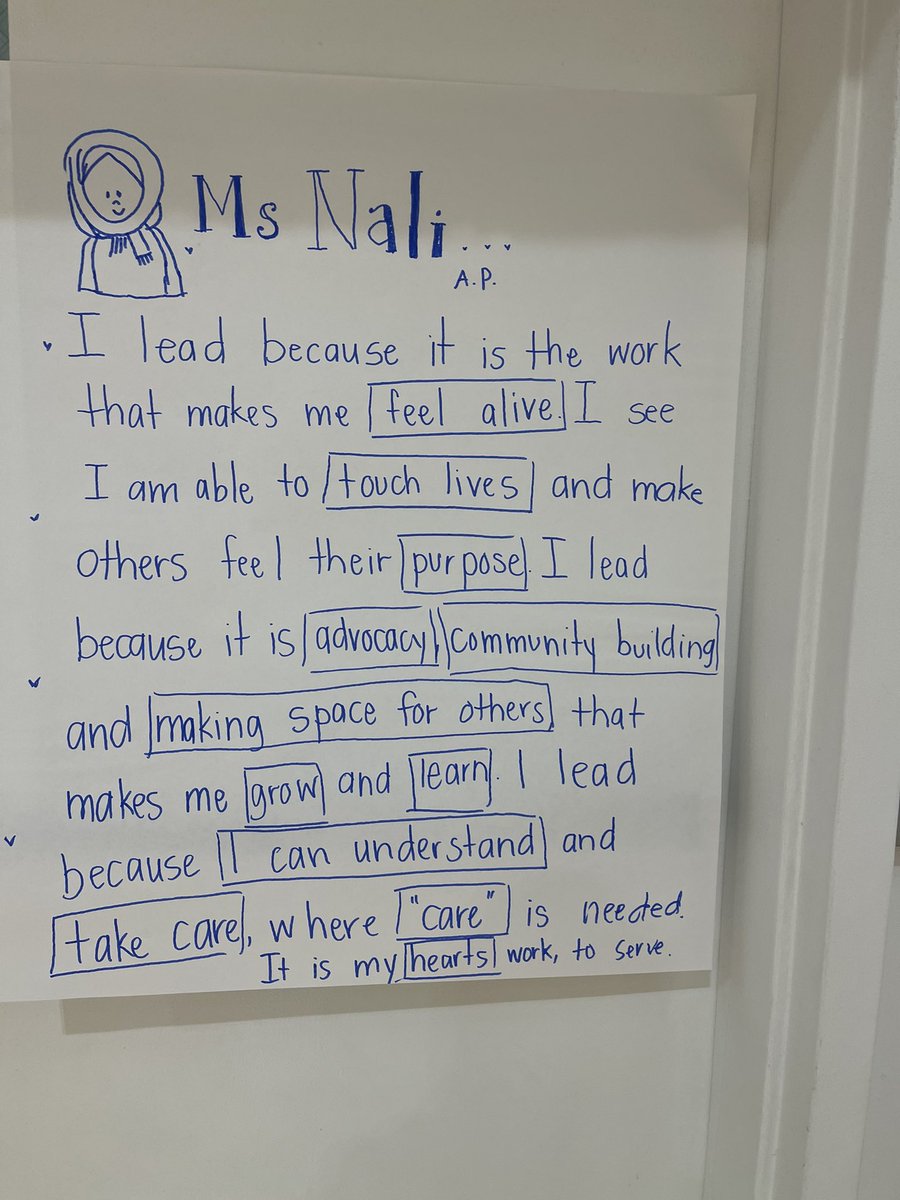 Ms Nali...
A.P.
I lead because it is the work
that makes me feel alive. I see
I am able to touch lives and make
others feel their purpose. I lead
because it is advocacy, community building
and making space for others that
makes me grow and learn. I lead
because I can understand and
take care, where "care" is needed.
It is my hearts work, to serve.